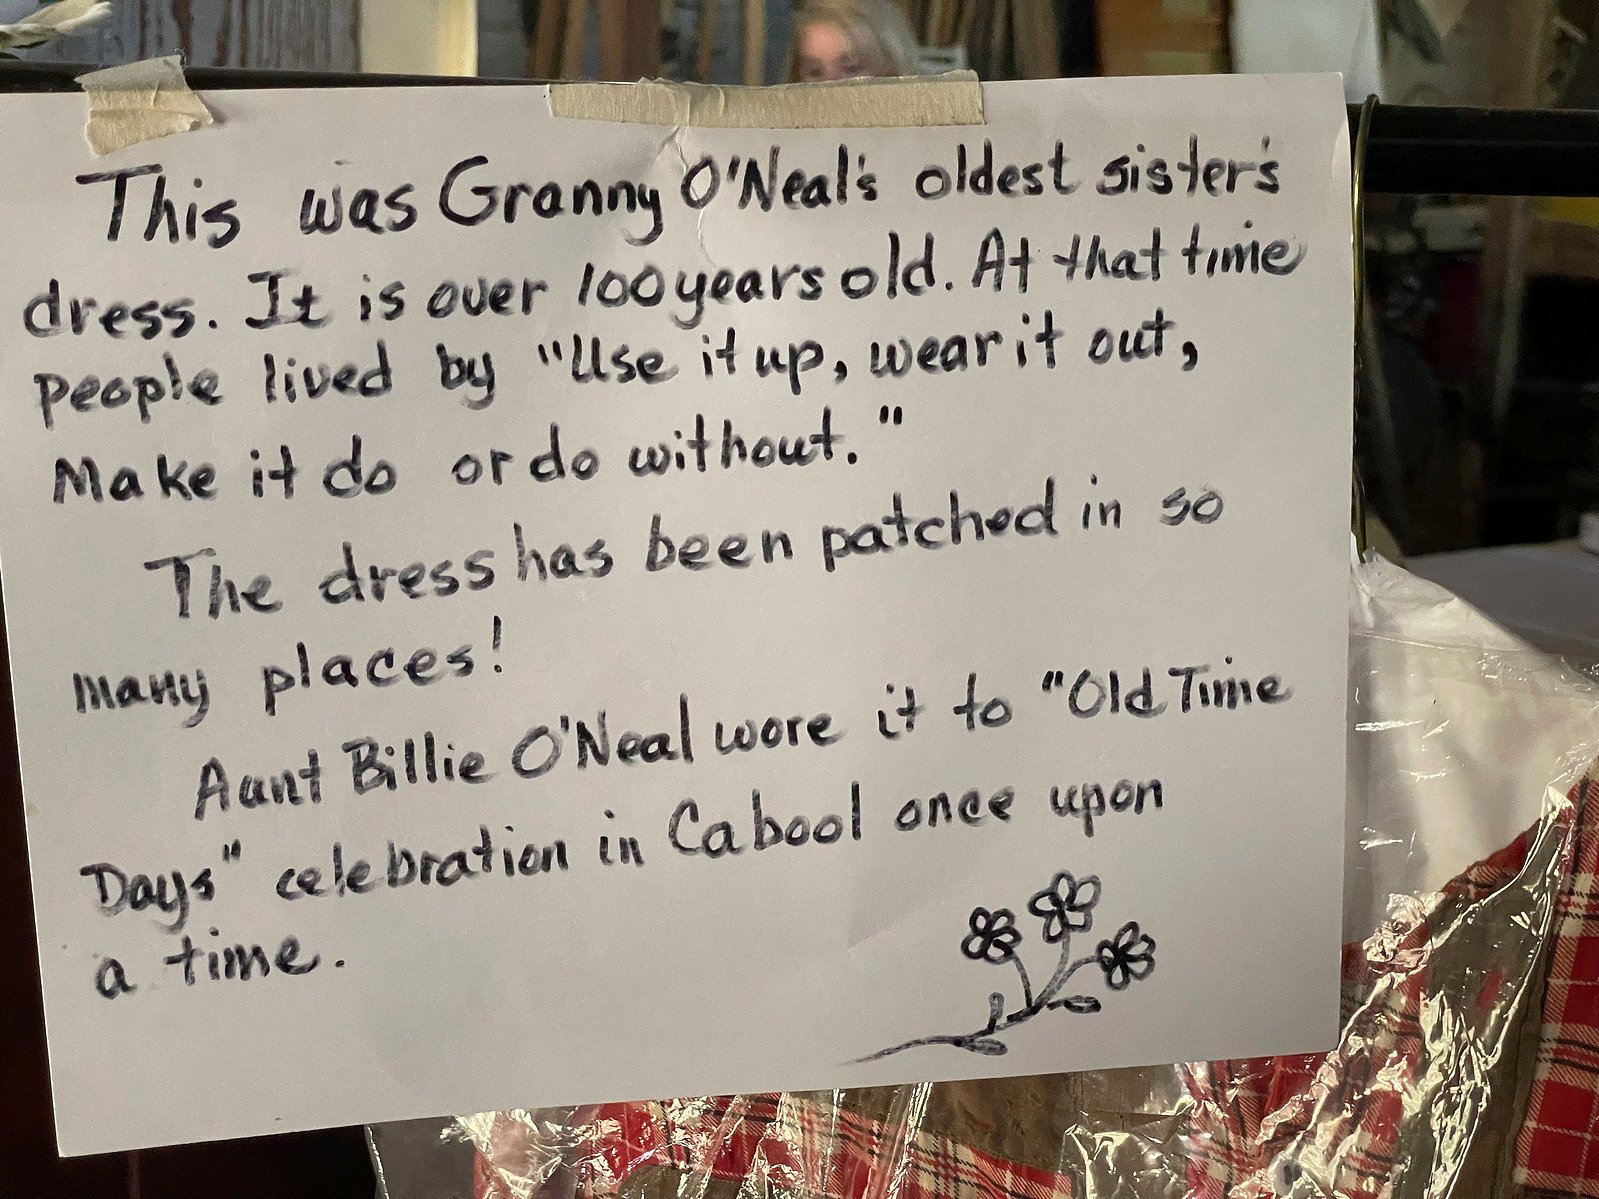 This was Granny O'Neal's oldest sister's
dress. It is over 100 years old. At that time
people lived by "Use it up, wear it out,
Make it do or do without."
The dress has been patched in so
many places!
Aunt Billie O'Neal wore it to "Old Time
Days" celebration in Cabool once upon
a time.